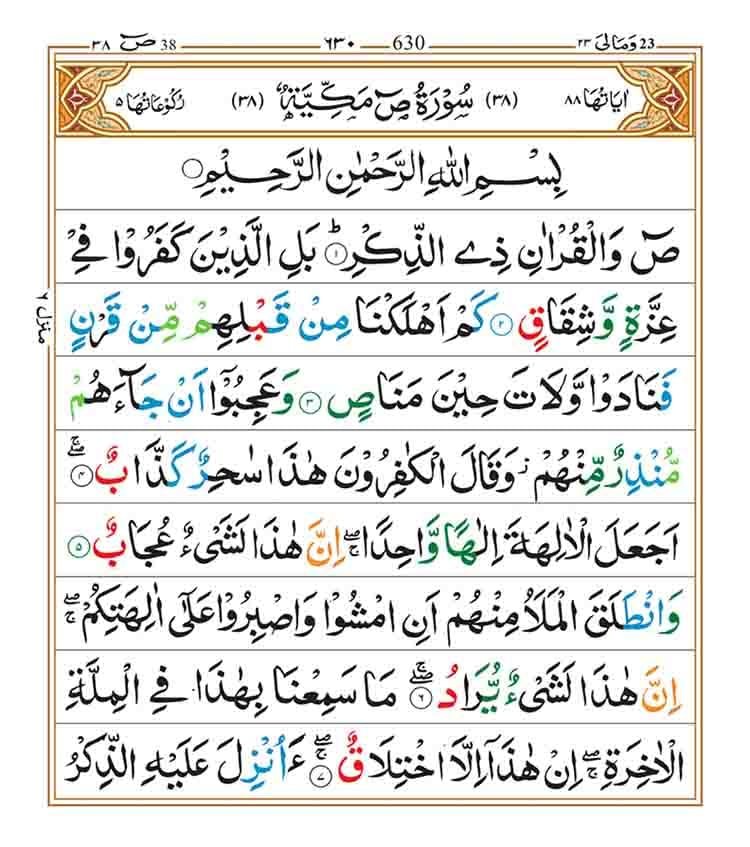 ٣٨ صٓ 38 ٦٣٠ 630 ٢٣ وَمَالِیَ 23
اٰیَاتُهَا ٨٨ (٣٨) سُوْرَةُ صٓ مَکِّیَّةٌ (٣٨) رُکُوْعَاتُهَا ٥
بِسْمِ اللّٰهِ الرَّحْمٰنِ الرَّحِیْمِ
صٓ وَالْقُرْاٰنِ ذِی الذِّكْرِؕ ١ بَلِ الَّذِیْنَ كَفَرُوْا فِیْ
عِزَّةٍ وَّشِقَاقٍ ٢ كَمْ اَهْلَكْنَا مِنْ قَبْلِهِمْ مِّنْ قَرْنٍ
فَنَادَوْا وَّلَاتَ حِیْنَ مَنَاصٍ ٣ وَعَجِبُوْۤا اَنْ جَآءَهُمْ
مُّنْذِرٌ مِّنْهُمْ ؗ وَقَالَ الْكٰفِرُوْنَ هٰذَا سٰحِرٌ كَذَّابٌ ۖۚ ٤
اَجَعَلَ الْاٰلِهَةَ اِلٰهًا وَّاحِدًا ۖۚ اِنَّ هٰذَا لَشَیْءٌ عُجَابٌ ٥
وَانْطَلَقَ الْمَلَاُ مِنْهُمْ اَنِ امْشُوْا وَاصْبِرُوْا عَلٰۤی اٰلِهَتِكُمْ ۖۚ
اِنَّ هٰذَا لَشَیْءٌ یُّرَادُ ۖۚ ٦ مَا سَمِعْنَا بِهٰذَا فِی الْمِلَّةِ
الْاٰخِرَةِ ۖۚ اِنْ هٰذَاۤ اِلَّا اخْتِلَاقٌ ۖۚ ٧ ءَاُنْزِلَ عَلَیْهِ الذِّكْرُ
منزل ٦